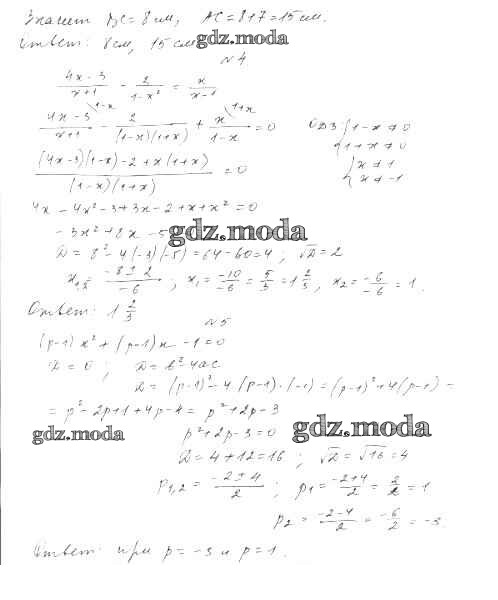 Значит BC = 8 см, AC = 8+7 = 15 см.
Ответ: 8 см, 15 см
gdz.moda
№4
(4x-3)/(x+1) - 2/(1-x²) = x/(x-1)
(4x-3)/(x+1) \1-x - 2/((1-x)(1+x)) + x/(1-x) \1+x = 0
ОДЗ: { 1-x ≠ 0
1+x ≠ 0
{ x ≠ 1
x ≠ -1
((4x-3)(1-x)-2+x(1+x))/((1-x)(1+x)) = 0
4x - 4x² - 3 + 3x - 2 + x + x² = 0
-3x² + 8x - 5
gdz.moda
D = 8² - 4(-3)(-5) = 64-60 = 4; √D = 2
x₁,₂ = (-8±2)/-6, x₁ = -10/-6 = 5/3 = 1 2/3, x₂ = -6/-6 = 1.
Ответ: 1 2/3
№5
(p-1)x² + (p-1)x - 1 = 0
D = 0; D = b² - 4ac
D = (p-1)² - 4·(p-1)·(-1) = (p-1)² + 4(p-1) =
= p² - 2p+1+4p-4 = p² + 2p - 3
gdz.moda
p² + 2p - 3 = 0
gdz.moda
D = 4+12 = 16; √D = √16 = 4
p₁,₂ = (-2±4)/2; p₁ = (-2+4)/2 = 2/2 = 1
p₂ = (-2-4)/2 = -6/2 = -3.
Ответ: при p = -3 и p = 1.